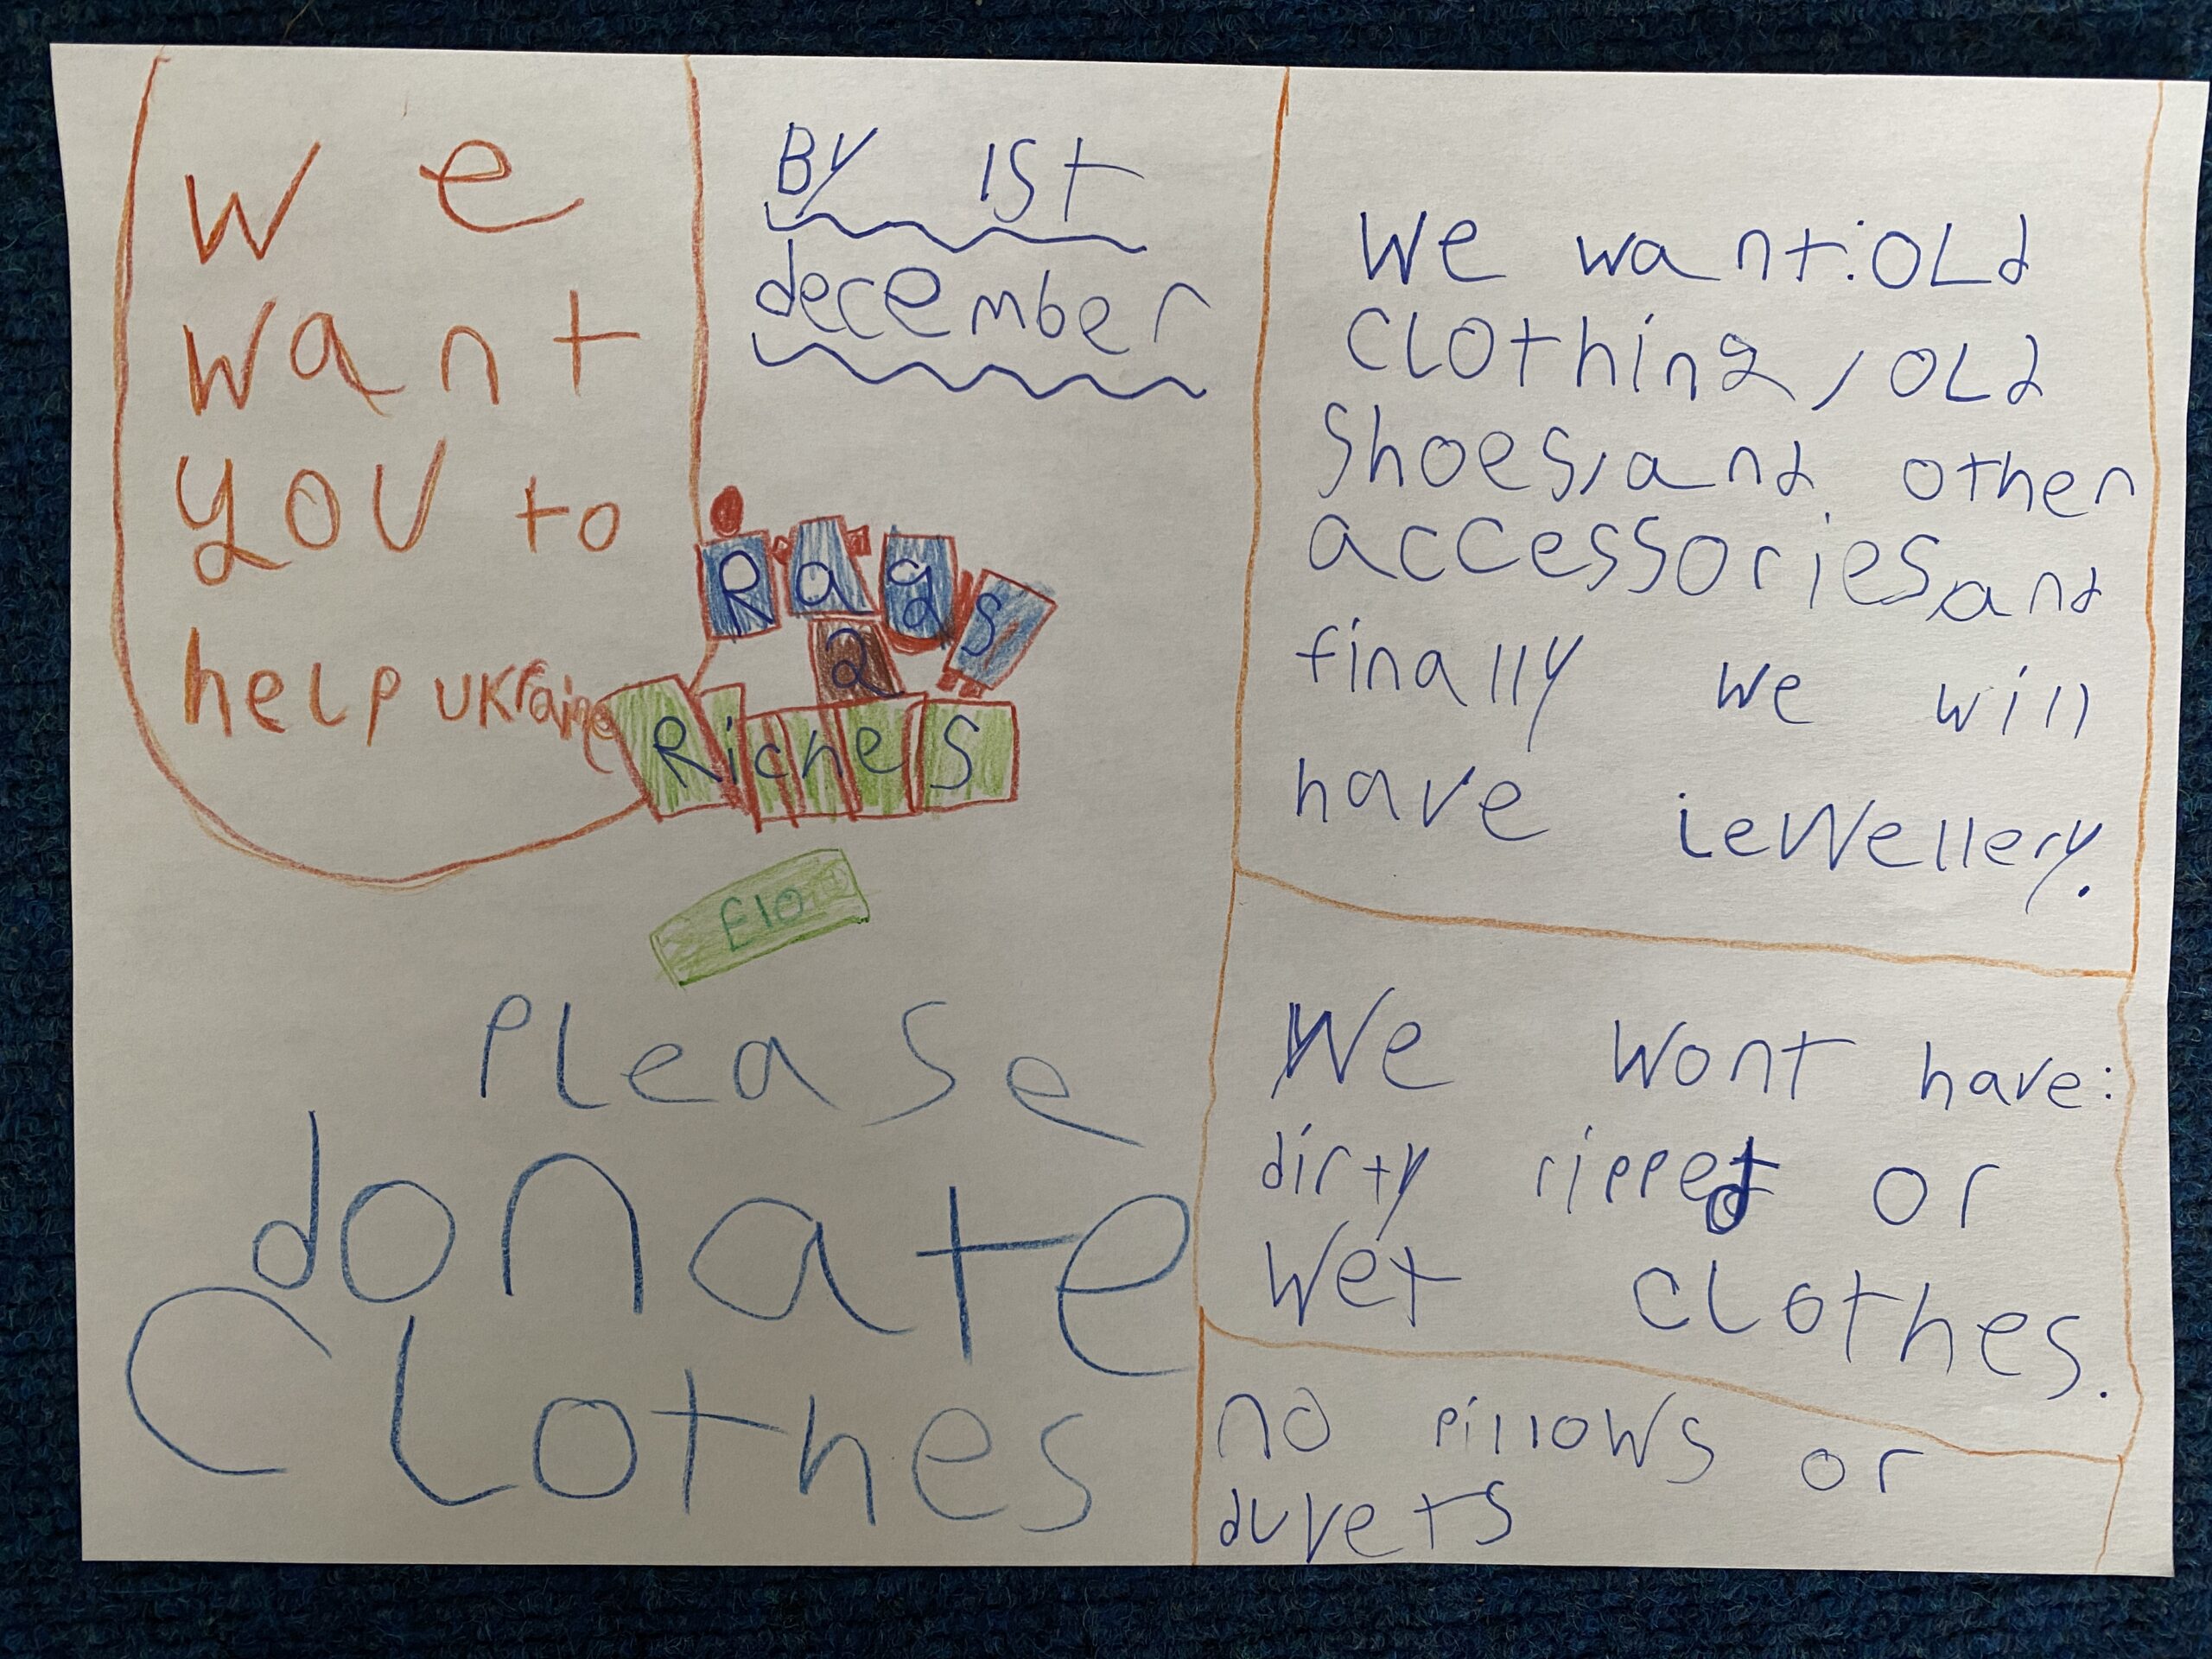 we
want
you to
help ukraine
By 1st
december
Rags
2
Riches
£10
Please
donate
Clothes
We want: old
clothing, old
shoes, and other
accessories and
finally we will
have jewellery.
We wont have:
dirty ripped or
wet clothes.
no pillows or
duvets